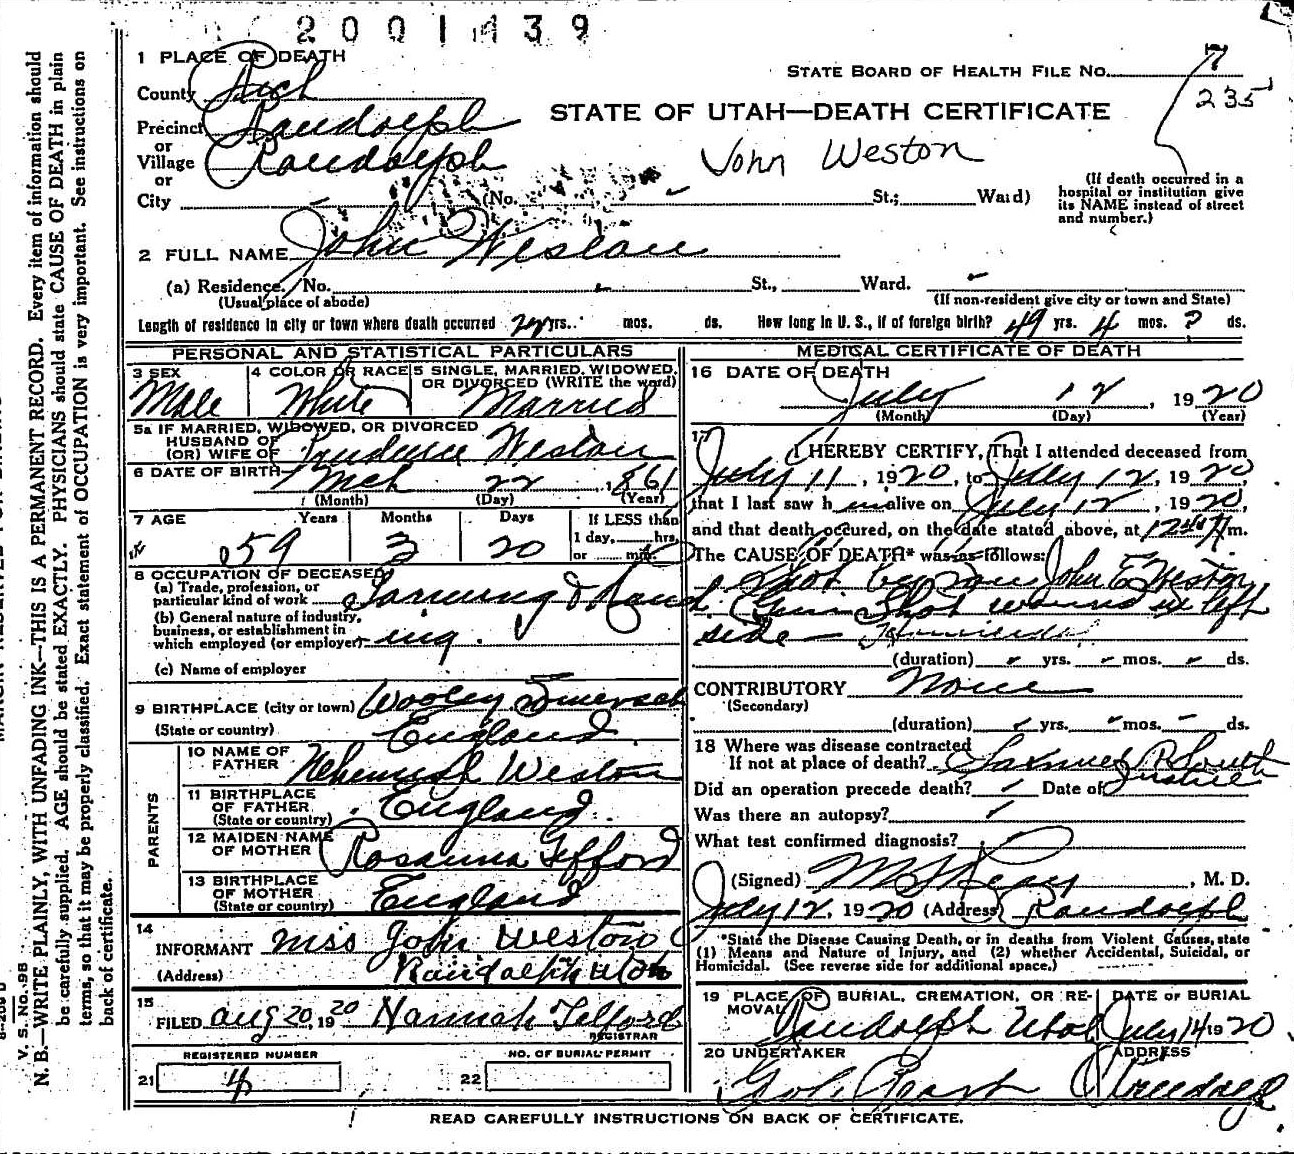 2001139
1 PLACE OF DEATH
STATE BOARD OF HEALTH FILE No. 7
County Rich
235
STATE OF UTAH—DEATH CERTIFICATE
Precinct Randolph
or
Village Randolph
John Weston
or
City (No. St.; Ward)
(If death occurred in a
hospital or institution give
its NAME instead of street
and number.)
2 FULL NAME John Weston
(a) Residence. No. St., Ward.
(Usual place of abode)
(If non-resident give city or town and State)
Length of residence in city or town where death occurred yrs. mos. ds. How long in U. S., if of foreign birth? 49 yrs. 4 mos. ? ds.
PERSONAL AND STATISTICAL PARTICULARS
3 SEX
Male
4 COLOR OR RACE
White
5 SINGLE, MARRIED, WIDOWED,
OR DIVORCED (WRITE the word)
Married
5a IF MARRIED, WIDOWED, OR DIVORCED
HUSBAND OF
(OR) WIFE OF Prudence Weston
6 DATE OF BIRTH Mch 22 1861
(Month) (Day) (Year)
7 AGE Years Months Days
59 3 20
If LESS than
1 day, hrs.
or min.
8 OCCUPATION OF DECEASED
(a) Trade, profession, or
particular kind of work Farming & Ranch
(b) General nature of industry,
business, or establishment in
which employed (or employer) ing.
(c) Name of employer
9 BIRTHPLACE (city or town) Wooley Smersab
(State or country) England
PARENTS
10 NAME OF
FATHER Nehemiah Weston
11 BIRTHPLACE
OF FATHER
(State or country) England.
12 MAIDEN NAME
OF MOTHER Rosanna Telford
13 BIRTHPLACE
OF MOTHER
(State or country) England
14
INFORMANT Mss John Weston
(Address) Randolph Utah
15
FILED Aug 20, 1920 Hannah Telford
REGISTRAR
REGISTERED NUMBER
21 4
NO. OF BURIAL PERMIT
22
MEDICAL CERTIFICATE OF DEATH
16 DATE OF DEATH
July 12, 1920
(Month) (Day) (Year)
17
I HEREBY CERTIFY, That I attended deceased from
July 11, 1920, to July 12, 1920,
that I last saw h im alive on July 12, 1920,
and that death occured, on the date stated above, at m.
The CAUSE OF DEATH* was as follows:
Shot by son John E Weston
Gun Shot wound in left
side — Homicide
(duration) yrs. mos. ds.
CONTRIBUTORY None
(Secondary)
(duration) yrs. mos. ds.
18 Where was disease contracted
If not at place of death? Samuel R South
Justice
Did an operation precede death? Date of
Was there an autopsy?
What test confirmed diagnosis?
(Signed) , M. D.
July 12, 1920 (Address) Randolph
*State the Disease Causing Death, or in deaths from Violent Causes, state
(1) Means and Nature of Injury, and (2) whether Accidental, Suicidal, or
Homicidal. (See reverse side for additional space.)
19 PLACE OF BURIAL, CREMATION, OR RE-
MOVAL Randolph Utah
DATE OF BURIAL
July 14 1920
20 UNDERTAKER
ADDRESS
READ CAREFULLY INSTRUCTIONS ON BACK OF CERTIFICATE.
V. S. No. 98
N. B.—WRITE PLAINLY, WITH UNFADING INK—THIS IS A PERMANENT RECORD. Every item of information should
be carefully supplied. AGE should be stated EXACTLY. PHYSICIANS should state CAUSE OF DEATH in plain
terms, so that it may be properly classified. Exact statement of OCCUPATION is very important. See instructions on
back of certificate.